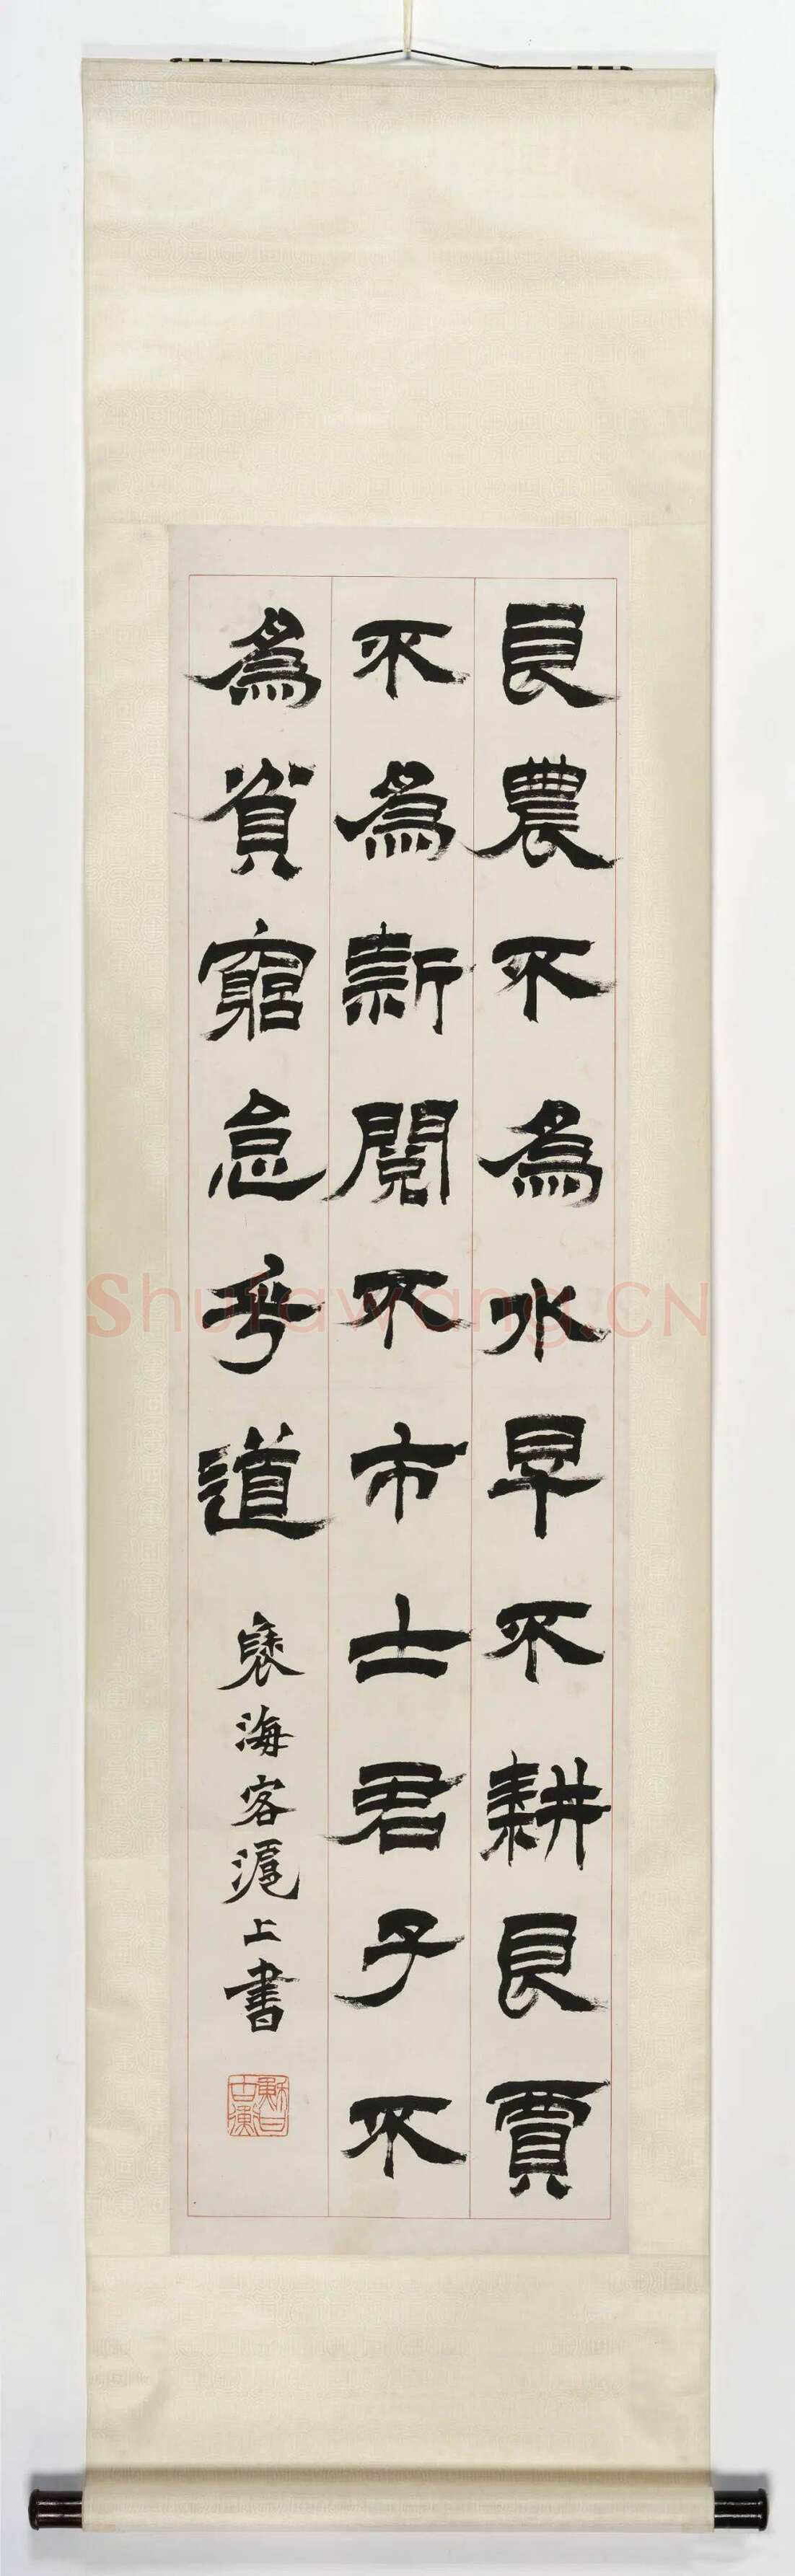 良農不為水旱不耕良賈
不為新閱不市士君子不
為貧窮怠乎道
海客滬上書
Shufawang.CN